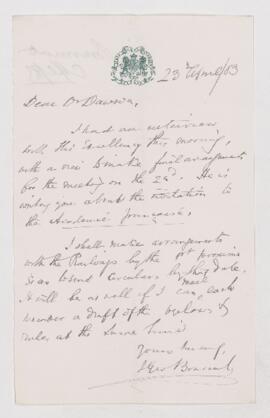 23 April/83
Dear Dr Dawson,
I had an interview
with His Excellency this morning,
with a view to make final arrangements
for the meeting on the 22d. He is
writing you about the invitation to
the Académie française.
I shall make arrangements
with the Railways by the
so as to send Circulars by that date.
It will be as well if I can send each
member a draft of the bylaws &
rules at the same time
Yours truly,
J Geo Bourinot